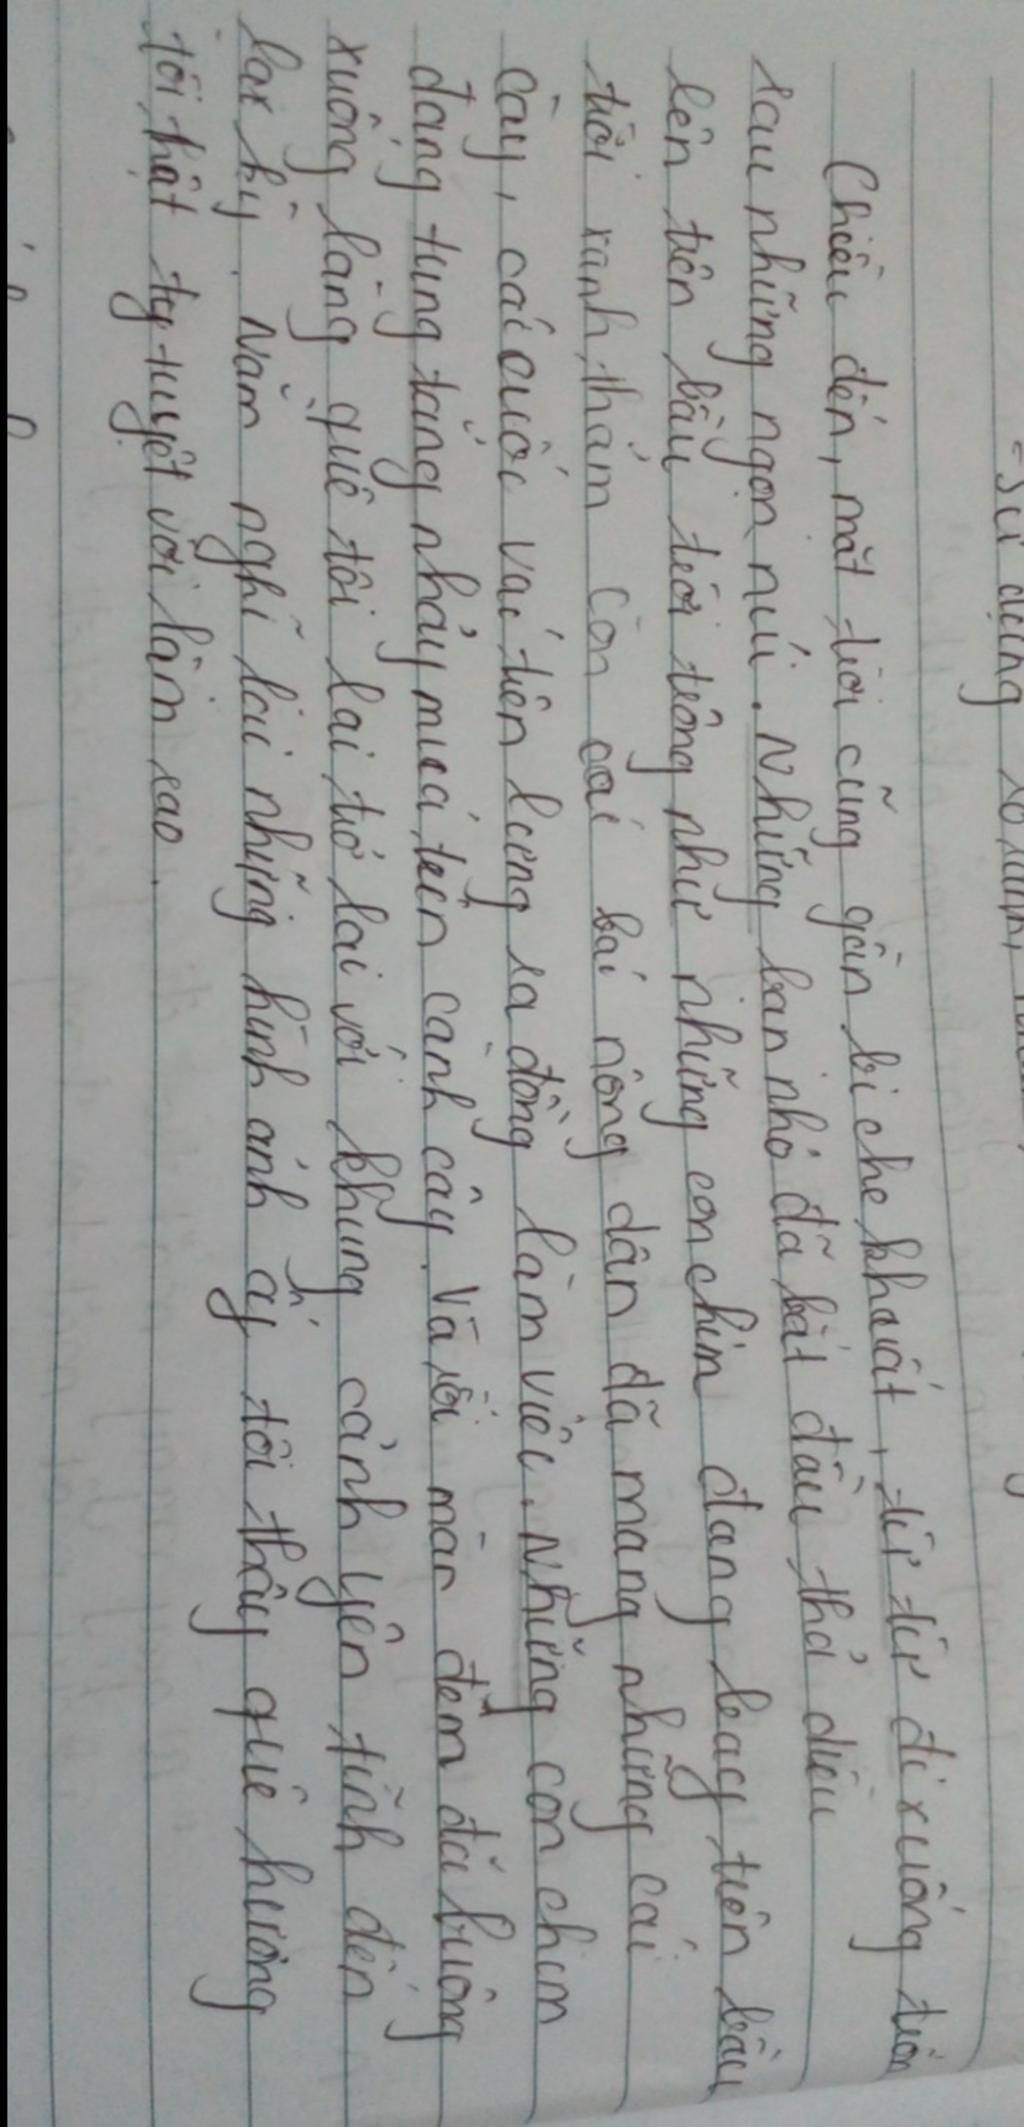 - Sử dụng so sánh,
Chiều đến, mặt trời cũng gần bị che khuất, từ từ đi xuống trên
sau những ngọn núi. Những bạn nhỏ đã bắt đầu thả diều
lên trên bầu trời trông như những con chim đang bay trên bầu
trời xanh thẳm. Còn các bác nông dân đã mang những cái
cày, cái cuốc vác trên lưng ra đồng làm việc. Những con chim
đang tung tăng nhảy múa trên cành cây. Và rồi màn đêm đã buông
xuống làng quê tôi lại trở lại với khung cảnh yên tĩnh đến
lạ kỳ. Nằm nghĩ lại những hình ảnh ấy tôi thấy quê hương
tôi thật tuyệt vời làm sao.